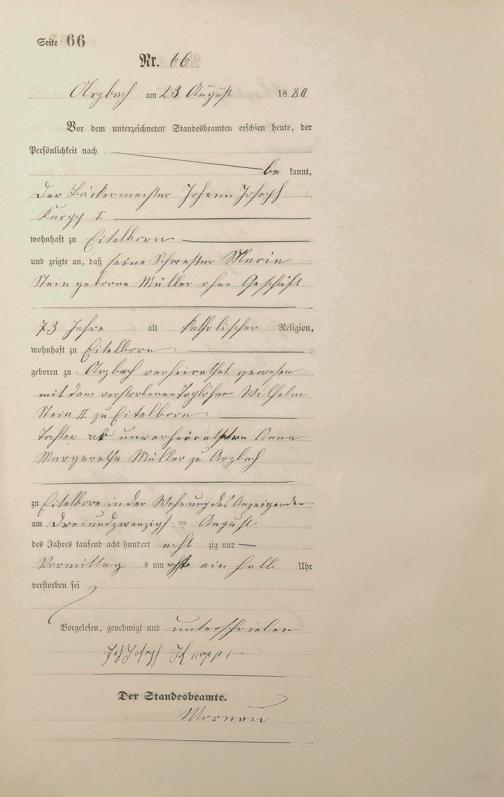 Seite 66
Nr. 66
Arzbach am 23 August 1880
Vor dem unterzeichneten Standesbeamten erschien heute, der
Persönlichkeit nach
be kannt,
der Bäckermeister Johann Joseph
Knopp I
wohnhaft zu Eitelborn
und zeigte an, daß seine Schwester Maria
Stein geborne Müller ohne Geschäft
73 Jahre alt katholischer Religion,
wohnhaft zu Eitelborn
geboren zu Arzbach verheirathet gewesen
mit dem verstorbenen Taglöhner Wilhelm
Stein II zu Eitelborn
Tochter der unverheiratheten Anna
Margaretha Müller zu Arzbach
zu Eitelborn in der Wohnung des Anzeigenden
am dreiundzwanzigsten August
des Jahres tausend acht hundert acht zig und
Vormittags um ein halb Uhr
verstorben sei
Vorgelesen, genehmigt und unterschrieben
Joh Joseph Knopp I
Der Standesbeamte.
Mornau